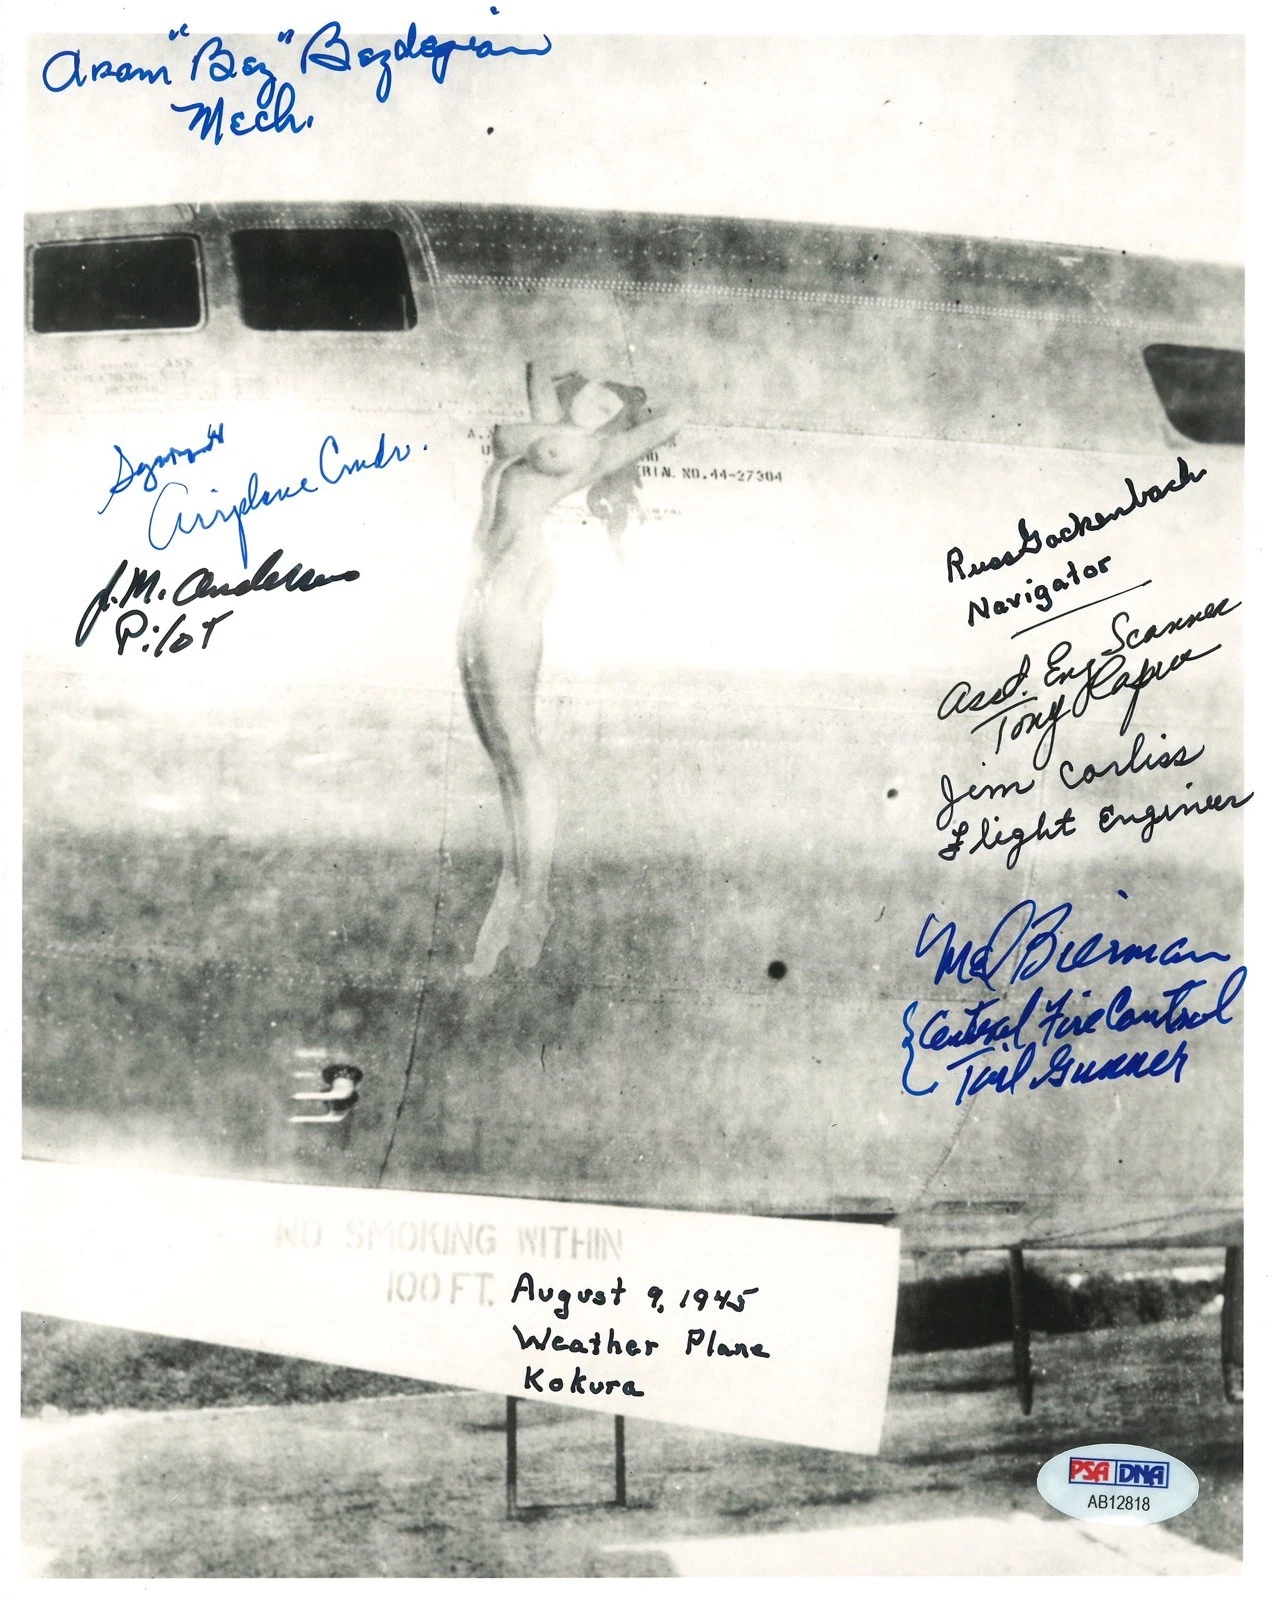 Aram "Boz" Bozdegian
Mech.
Airplane Cmdr.
J. M. Anderson
Pilot
RIAL NO. 44-27304
Russ Gackenbach
Navigator
Asst. Eng Scanner
Tony Capua
Jim Corliss
Flight Engineer
Mel Bierman
Central Fire Control
Tail Gunner
NO SMOKING WITHIN
100 FT.
August 9, 1945
Weather Plane
Kokura
PSA DNA
AB12818